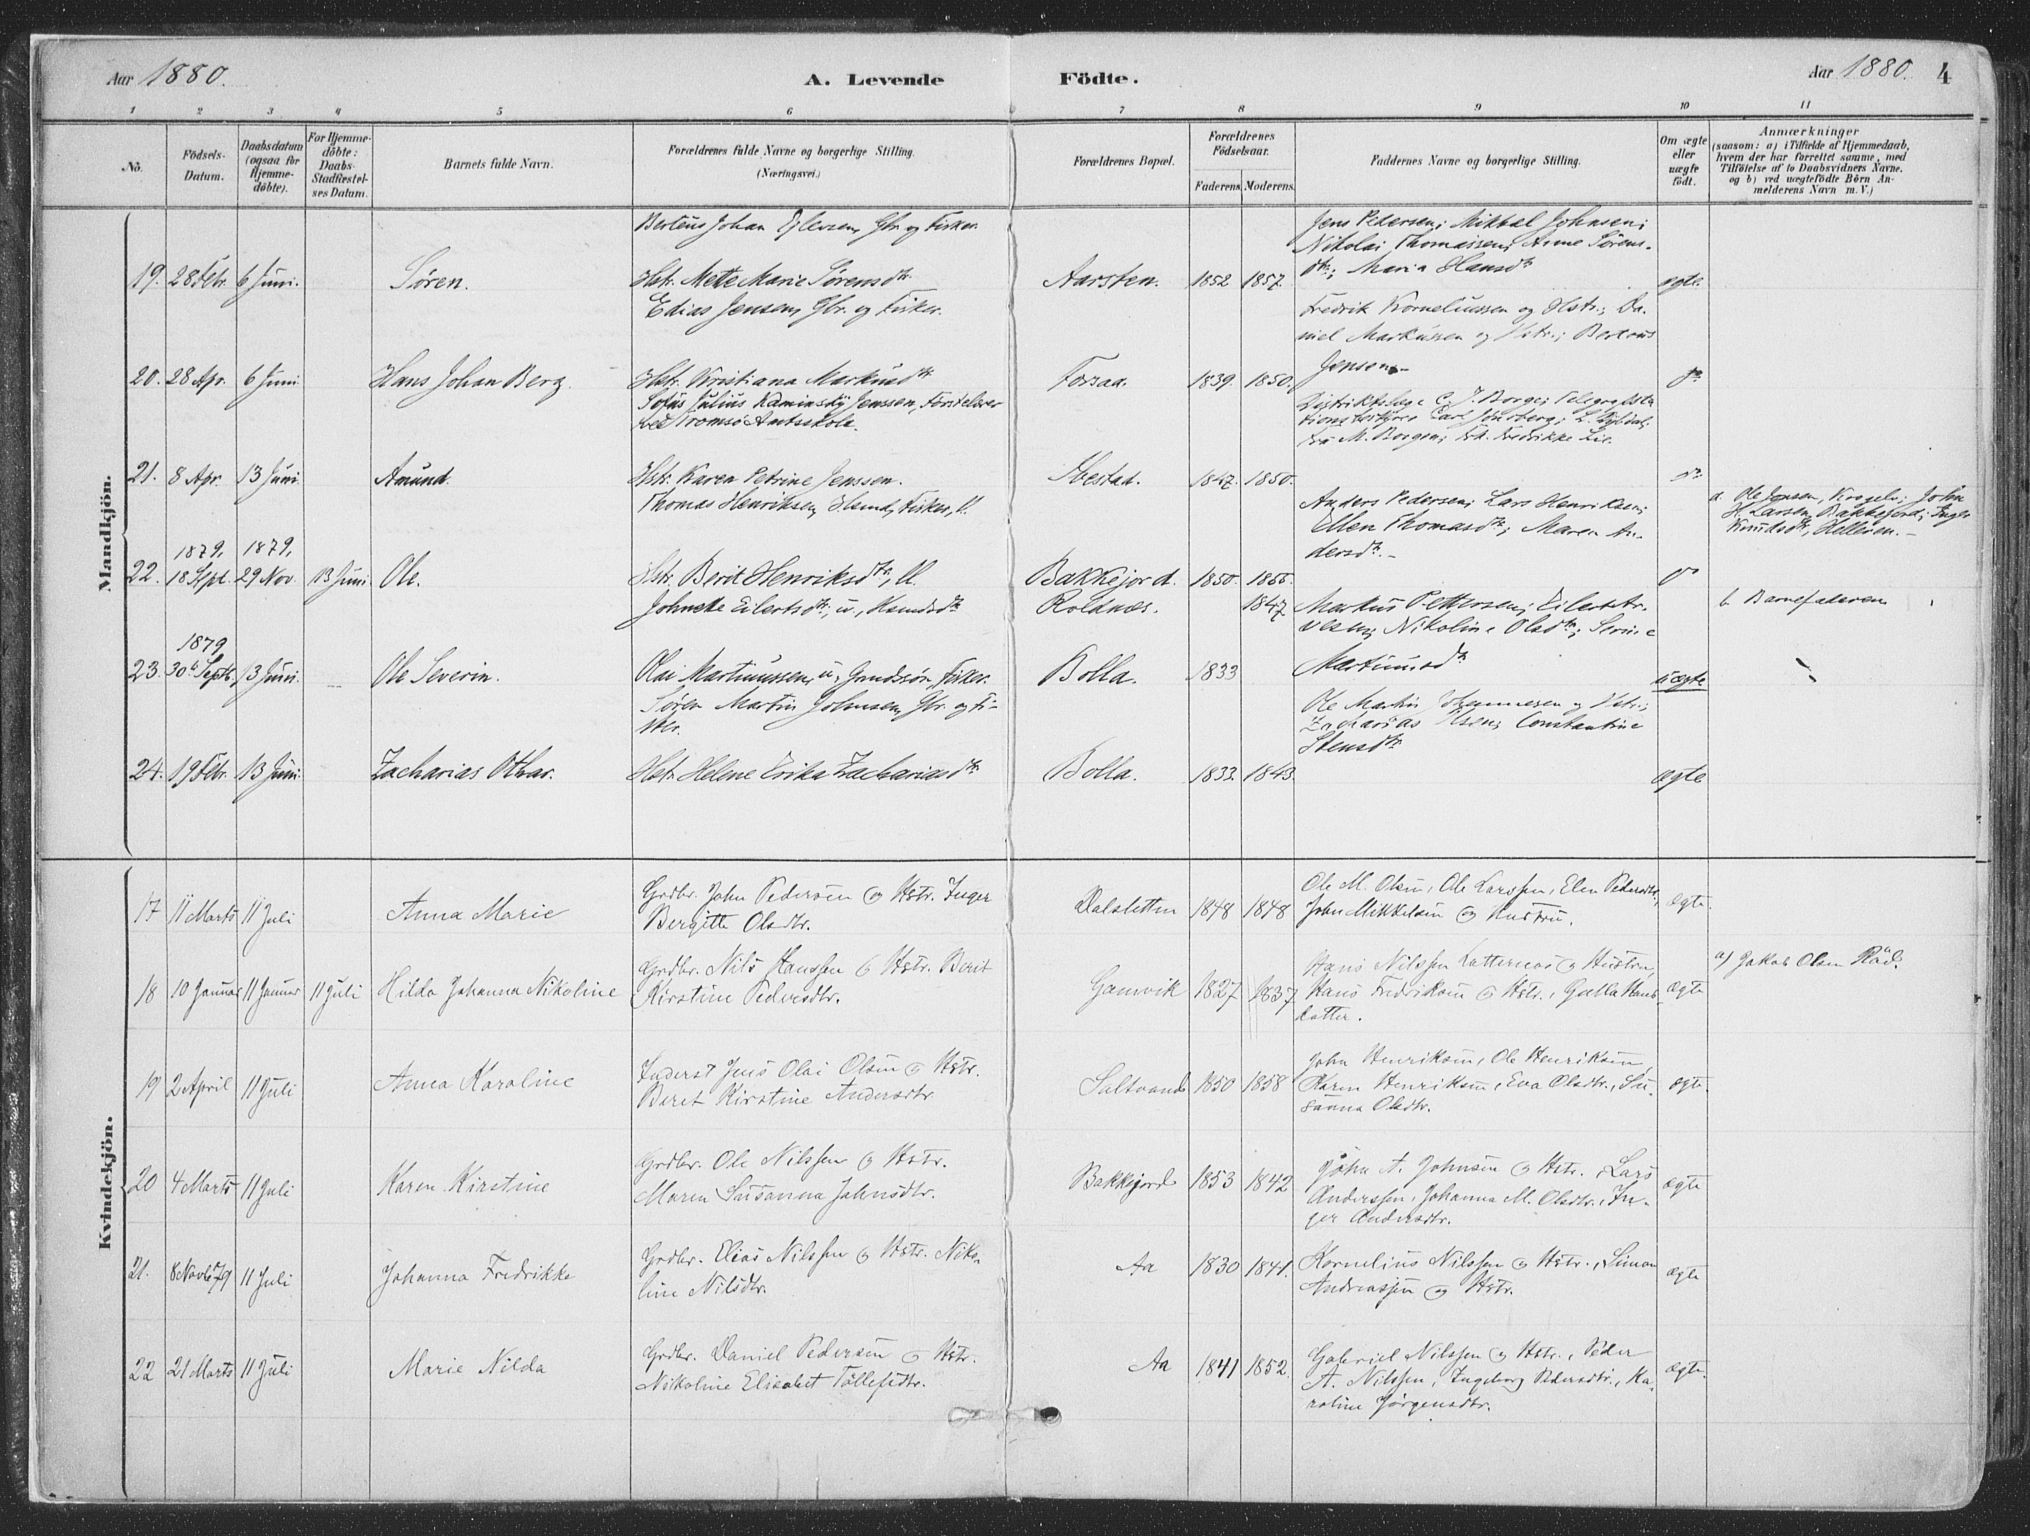 Aar 1880.
A. Levende Födte.
Aar 1880. 4
1 2 3 4 5 6 7 8 9 10 11
No.
Födsels-
Datum.
Daabsdatum
(ogsaa for
Hjemme-
döbte).
For Hjemme-
döbte:
Daabs-
Stadfæstel-
ses Datum.
Barnets fulde Navn.
Forældrenes fulde Navne og borgerlige Stilling.
(Næringsvei.)
Forældrenes Bopæl.
Forældrenes
Födselsaar.
Faderens. Moderens.
Faddernes Navne og borgerlige Stilling.
Om ægte
eller
uægte
födt.
Anmærkninger
(saasom: a) i Tilfælde af Hjemmedaab,
hvem der har forrettet samme, med
Tilföielse af to Daabsvidners Navne,
og b) ved uægtefödte Börn An-
melderens Navn m. V.)
Mandkjön.
19. 28 Febr. 6 Juni. Søren.
Berteus Johan Gbr. og Fisker.
Hstr. Mette Marie Sørensdtr.
Aarsten. 1852 1857.
Jens Pedersen; Mikkal Johnsen;
Nikolai Thomassen; Anne Sørens-
dtr; Maria Hansdtr
ægte.
20. 28 Apr. 6 Juni Hans Johan Berg.
Edias Jensen, Gbr. og Fisker.
Hstr. Kristiana Markusdtr
Forsaa. 1839. 1850.
Fredrik Korneliussen og Hstr.; Da-
niel Markussen og Hstr.; Berteus
Jensen.-
21. 8 Apr. 13 Juni Amund.
Sofus Julius Kaminsky Jenssen, Forstelærer
ved Tromsø Amtsskole.
Hstr. Karen Petrine Jenssen.
Ibestad. 1847. 1850.
Distriktslæge C. J. Borge; Telegrafsta-
tionsbestyrer Carl
Fru M. Borgen; Frk. Fredrikke Lie.
22. 1879, 18 Sept. 1879, 29 Nov. 13 Juni Ole.
Thomas Henriksen, Hsmd, Fisker,
Hstr. Berit Henriksdtr,
Bakkejord. 1850. 1855.
Anders Pedersen; Lars Henriksen;
Ellen Thomasdtr; Maren An-
dersdtr.-
a. Ole Jensen, John
H. Larsen, Bakkejord; Inger
Knudsdtr,
23. 1879 30te Septb. 13 Juni. Ole Severin.
Johneke Eilertsdtr; u,
Olai Martinussen, u, Fisker.
Roldnæs. 1847.
Bolla. 1833
Markus Pettersen; Eilert Ar-
vesen; Nikoline Olsdtr; Serine
Martinusdtr
uægte
b. Barnefaderen
24. 19 Febr. 13 Juni. Zacharias Othar.
Søren Martin Johnsen, Gbr. og Fi-
sker.
Hstr. Helene Erika Zachariasdtr
Bolla. 1833. 1843.
Ole Martin Johannesen og Hstr.;
Zacharias Olsen; Constantine
Stensdtr.
ægte
Kvindekjön.
17 11 Marts 11 Juli Anna Marie
Grdbr. John Pedersen og Hstr. Inger
Bergitte Olsdtr.
Dalsletten 1848 1848
Ole M. Olsen, Ole Larssen, Elen Pedersdtr.,
John Mikkelsen og Hustru.
ægte.
18 10 Januar 11 Januar 11 Juli Hilda Johanna Nikoline
Grdbr. Nils Hanssen og Hstr. Berit
Kirstine Pedersdtr.
Gamvik 1827 1837
Hans Nilssen Latternes og Hustru,
Hans Fredriksen og Hstr., Gulla Hans-
datter.
ægte
a) Jakob Olsen Råd.
19 2 April 11 Juli Anna Karoline
Inderst Jens Olai Olsen og Hstr.
Beret Kirstine Andersdtr
Saltvand 1850 1858
John Henriksen, Ole Henriksen
Karen Henriksen, Eva Olsdtr., Su-
sanna Olsdtr.
ægte.
20 4 Marts 11 Juli Karen Kirstine
Grdbr. Ole Nilssen og Hstr.
Maren Susanna Johnsdtr.
Bakkejord 1853 1842
John A. Johnsen og Hstr., Lars
Anderssen, Johanna M. Olsdtr., In-
ger Andersdtr.
ægte
21. 8 Novb. 79 11 Juli Johanna Fredrikke
Grdbr. Elias Nilssen og Hstr. Niko-
line Nilsdtr.
Aa 1830 1841.
Kornelius Nilssen og Hstr., Simon
Andreassen og Hstr.
ægte
22 21 Marts 11 Juli Marie Nilda
Grdbr. Daniel Pedersen og Hstr.
Nikoline Elisabet Tollefsdtr.
Aa 1841 1852.
Gabriel Nilssen og Hstr., Peder
A. Nilssen, Ingeborg Pedersdtr., Ka-
roline Jørgensdtr.
ægte.